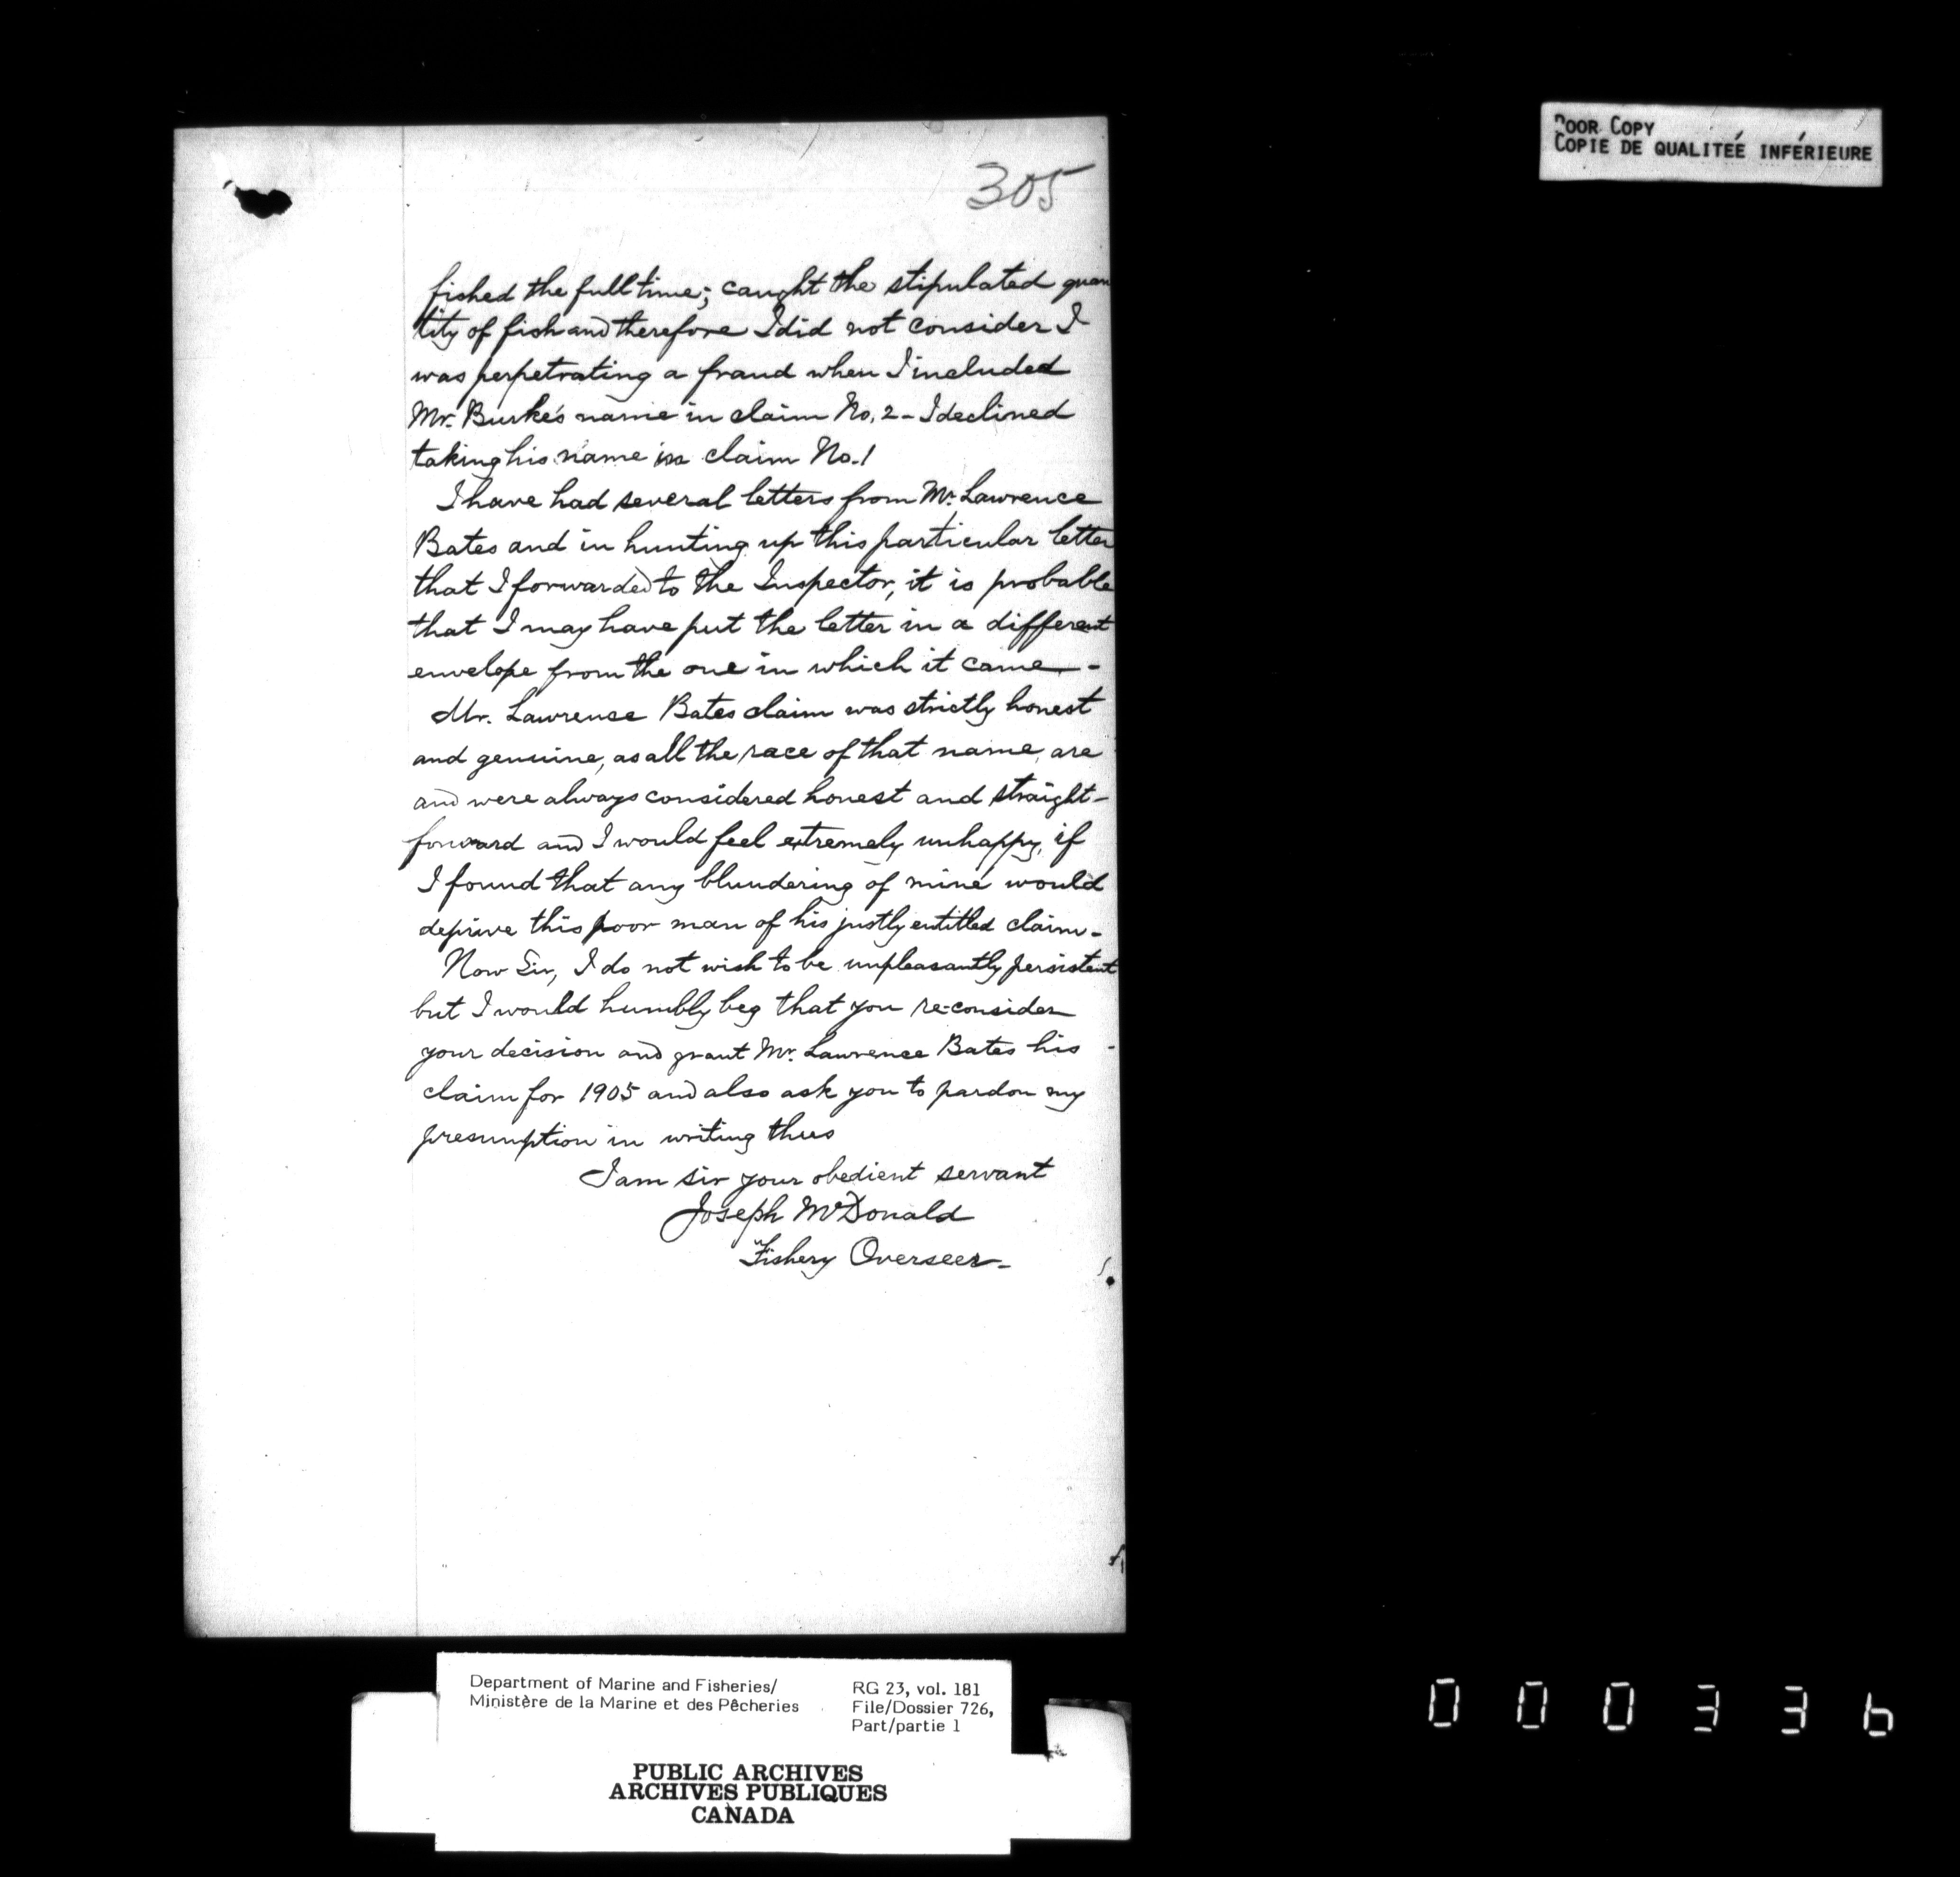 POOR COPY
COPIE DE QUALITEÉ INFÉRIEURE
305
fished the full time; caught the stipulated quan
tity of fish and therefore I did not consider I
was perpetrating a fraud when I included
Mr. Burke's name in claim No. 2 - I declined
taking his name in claim No. 1
I have had several letters from Mr. Lawrence
Bates and in hunting up this particular letter
that I forwarded to the Inspector, it is probable
that I may have put the letter in a different
envelope from the one in which it came -
Mr. Lawrence Bates claim was strictly honest
and genuine, as all the race of that name, are
and were always considered honest and straight-
forward and I would feel extremely unhappy, if
I found that any blundering of mine would
deprive this poor man of his justly entitled claim -
Now Sir, I do not wish to be unpleasantly persistent
but I would humbly beg that you re-consider
your decision and grant Mr. Lawrence Bates his
claim for 1905 and also ask you to pardon my
presumption in writing thus
I am sir your obedient servant
Joseph McDonald
Fishery Overseer -
Department of Marine and Fisheries/
Ministère de la Marine et des Pêcheries
RG 23, vol. 181
File/Dossier 726,
Part/partie 1
PUBLIC ARCHIVES
ARCHIVES PUBLIQUES
CANADA
000336